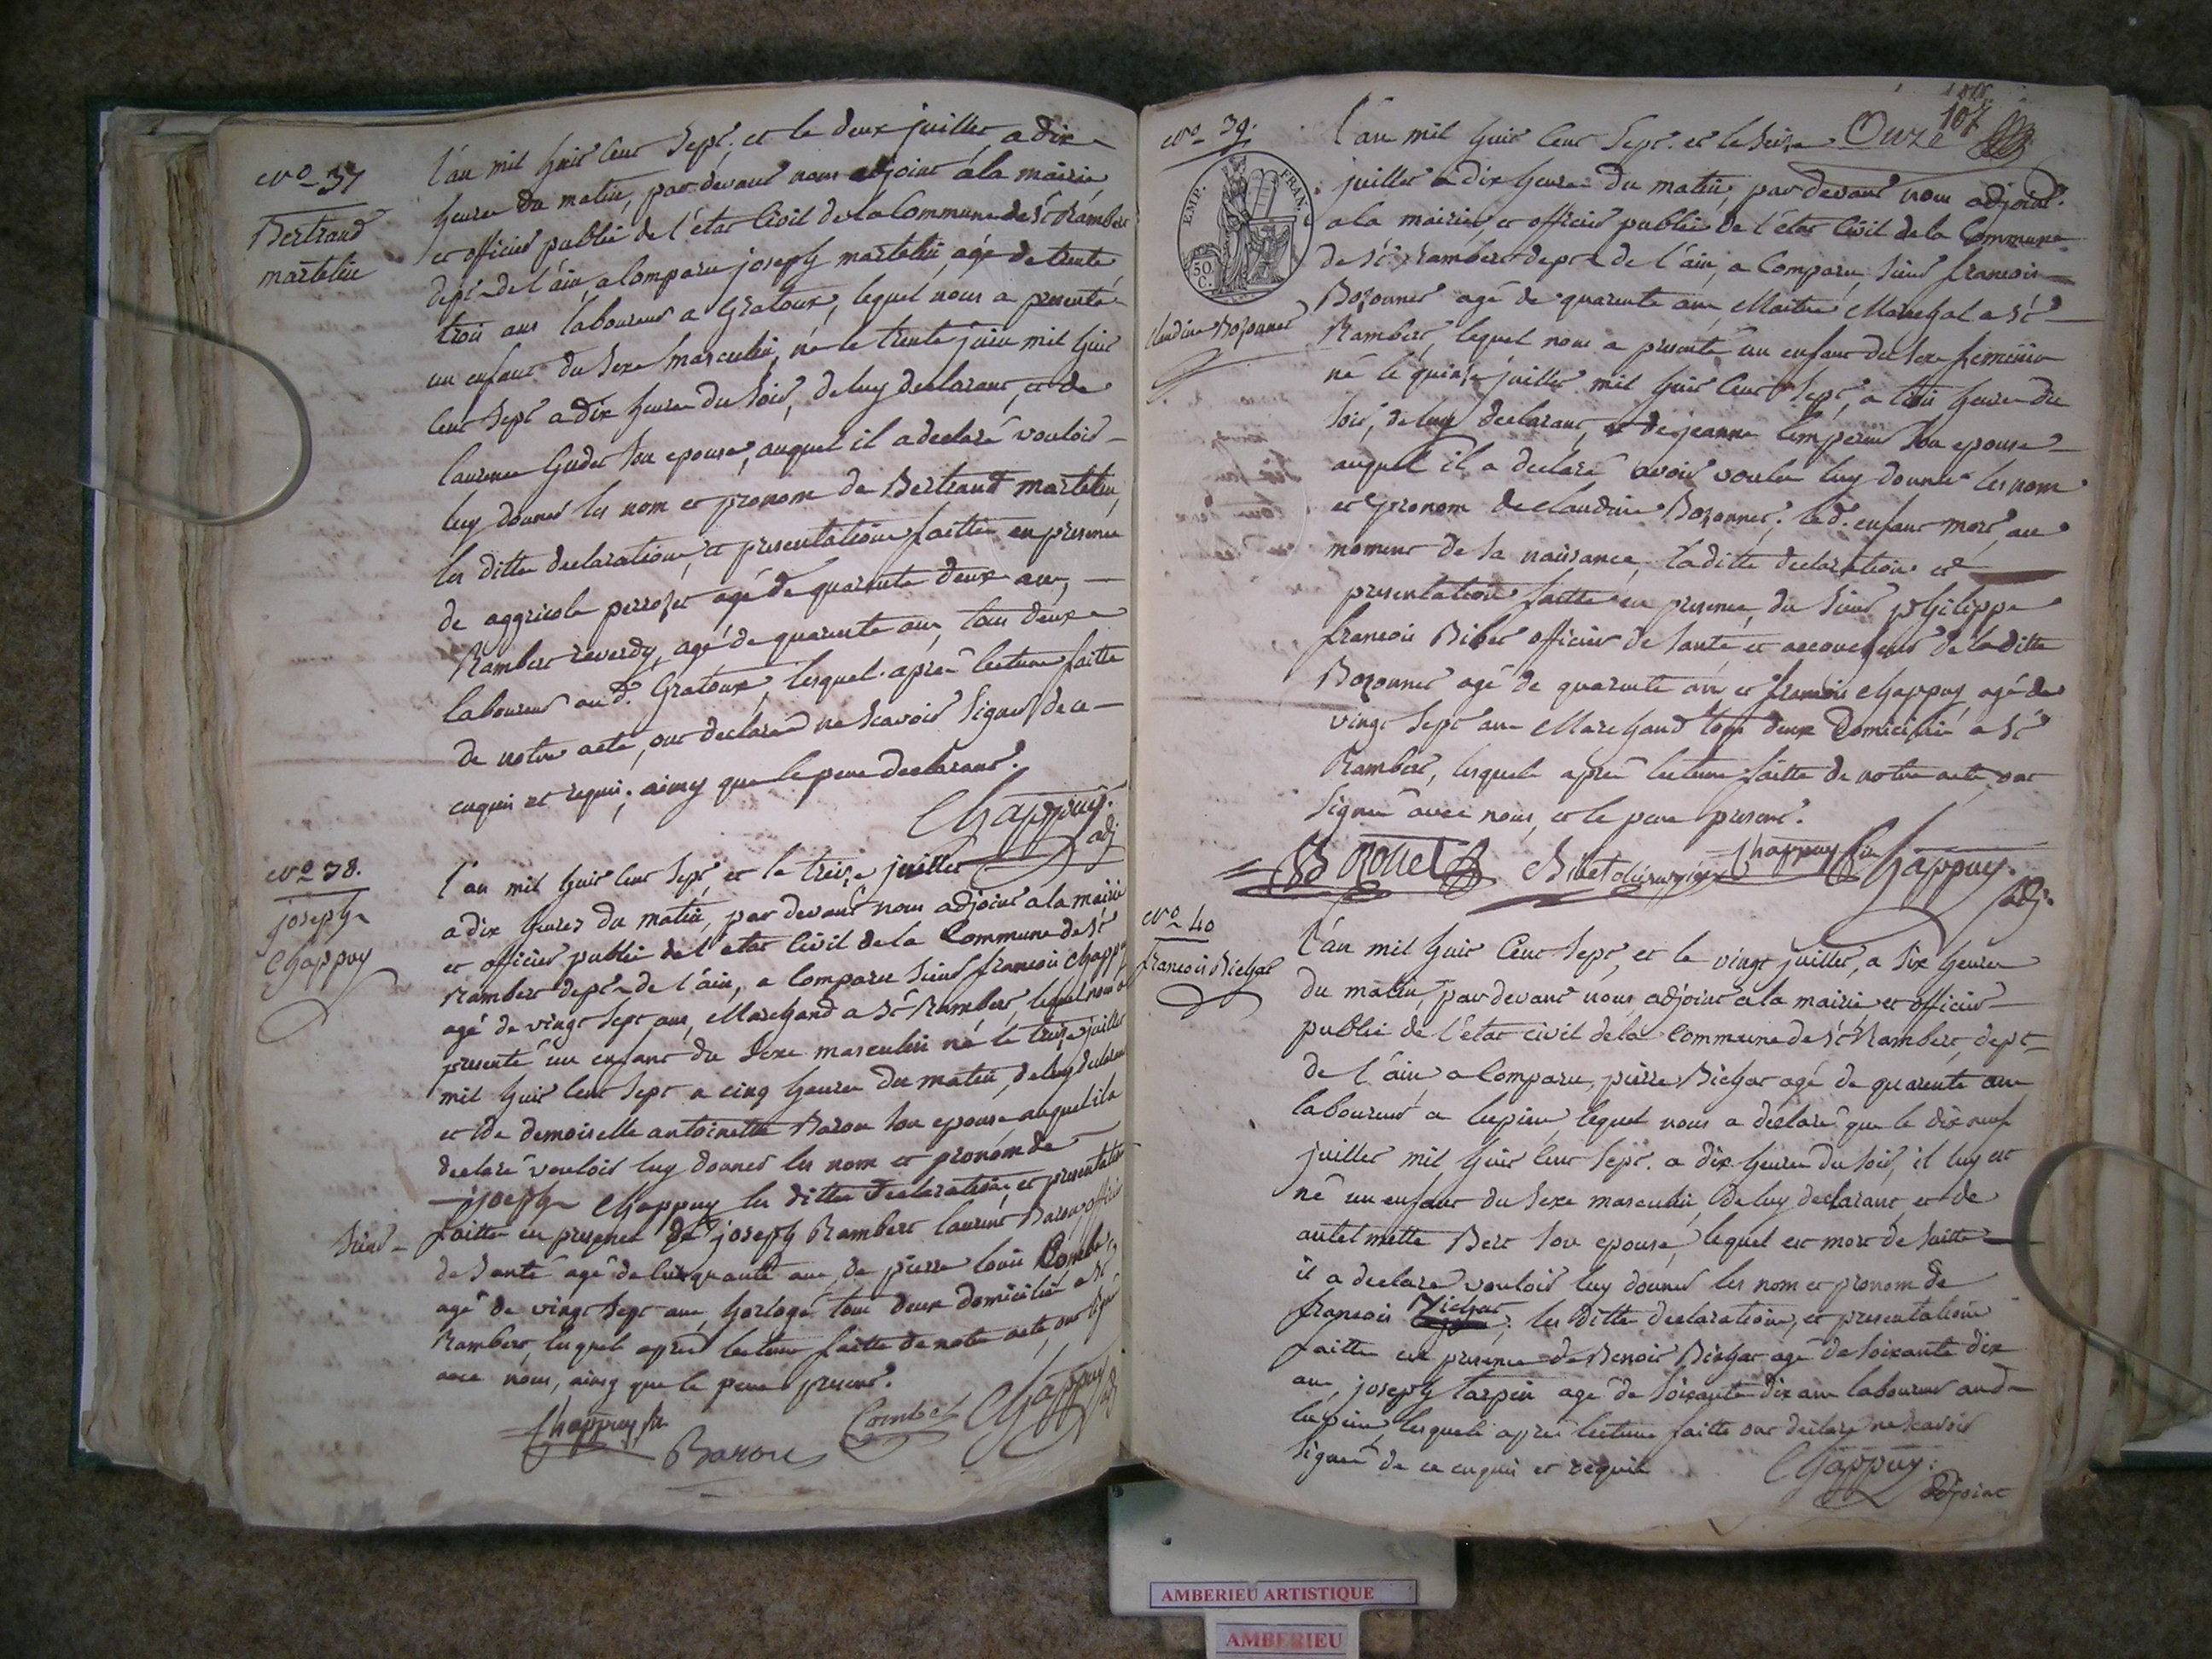 No 37
Bertrand
martelin
l'an mil huit Cent Sept, et le deux juillet, a dix
heures du matin, par devant nous adjoint a la mairie
et officier public de l'état Civil de la Commune de St Rambert
dept de l'ain, a Comparu joseph martelin, agé de trente
trois ans laboureur a Gratoux, lequel nous a presenté
un enfant du Sexe masculin, né le trente juin mil huit
Cent Sept a dix heures du Soir, de luy declarant, et de
laurence Son epouse, auquel il a declaré vouloir
luy donner les nom et pronom de Bertrand martelin,
les ditte declaration, et presentation faitte en presence
de aggricole perrozet agé de quarante deux ans,
Rambert reverdy, agé de quarante ans, tous deux
laboureur aud. Gratoux, lesquels après lecture faitte
de notre acte, ont declaré ne Scavoir Signer de ce
enquis et requis, ainsy que le pere declarant.
Chappuy.
adj
No 38.
joseph
Chappuy
l'an mil huit Cent Sept et le treize juillet
a dix heures du matin, par devant nous adjoint a la mairie
et officier public de l'etat Civil de la Commune de St
Rambert dept de l'ain, a Comparu Sieur francois Chappuy
agé de vingt Sept ans, Marchand a St Rambert, lequel nous a
presenté un enfant du Sexe masculin né le treize juillet
mil huit Cent Sept a cinq heures du matin, de luy declarant
et de demoiselle antoinette Baron Son epouse auquel il a
declaré vouloir luy donner les nom et pronom de
joseph Chappuy les dittes declaration, et presentation
Sieur faitte en presence de joseph Rambert laurent Baron officier
de Santé agé de Cinquante ans, de pierre louis Combet
agé de vingt Sept ans, horlogé tous deux domicilié a St
Rambert, lesquels après lecture faitte de notre acte, ont Signé
avec nous, ainsy que le pere present.
Chappuy fils Baron Combet Chappuy adj
107
No 39. l'an mil huit Cent Sept. et le Seize Onze
EMP. FRAN.
50 C.
juillet a dix heures du matin, par devant nous adjoint
a la mairie, et officier public de l'état Civil de la Commune
de St Rambert dept de l'ain, a Comparu, Sieur francois
Bozonnet agé de quarante ans, Maitre Marechal a St
Claudine Bozonnet
Rambert, lequel nous a presenté un enfant du Sexe feminin
né le quinze juillet mil huit Cent Sept, a trois heures du
Soir, de luy declarant, et de jeanne Lempereur Son epouse
auquel il a declaré avoir voulu luy donner les nom
et pronom de Claudine Bozonnet, led. enfant mort, au
moment de Sa naissance, la ditte declaration et
presentation faitte en presence, du Sieur philippe
francois Bilet officier de Santé et accoucheur de la ditte
Bozonnet agé de quarante ans et francois Chappuy, agé de
vingt Sept ans Marchand tous deux Domicilié a St
Rambert, lesquels après lecture faitte de notre acte ont
Signé avec nous, et le pere present.
Bozonet Bilet chirurgien Chappuy fils Chappuy. adj.
No 40
francois Bichat
l'an mil huit Cent Sept, et le vingt juillet, a Six heures
du matin, par devant nous, adjoint a la mairie, et officier
public de l'état civil de la Commune de St Rambert, dept
de l'ain a Comparu, pierre Bichat agé de quarante ans
laboureur a lupieu lequel nous a declaré que le dix neuf
juillet mil huit Cent Sept. a dix heures du Soir, il luy est
né un enfant du Sexe masculin, de luy declarant, et de
Bert Son epouse, lequel est mort de Suitte
il a declaré vouloir luy donner les nom et pronom de
francois Bichat; les ditte declaration, et presentation
faitte en presence de Benoit Bichat agé de Soixante dix
ans, joseph tarpin agé de Soixante dix ans laboureur aud
lupieu, lesquels après lecture faitte ont declaré ne Scavoir
Signer de ce enquis et requit
Chappuy.
adjoint
AMBERIEU ARTISTIQUE
AMBERIEU